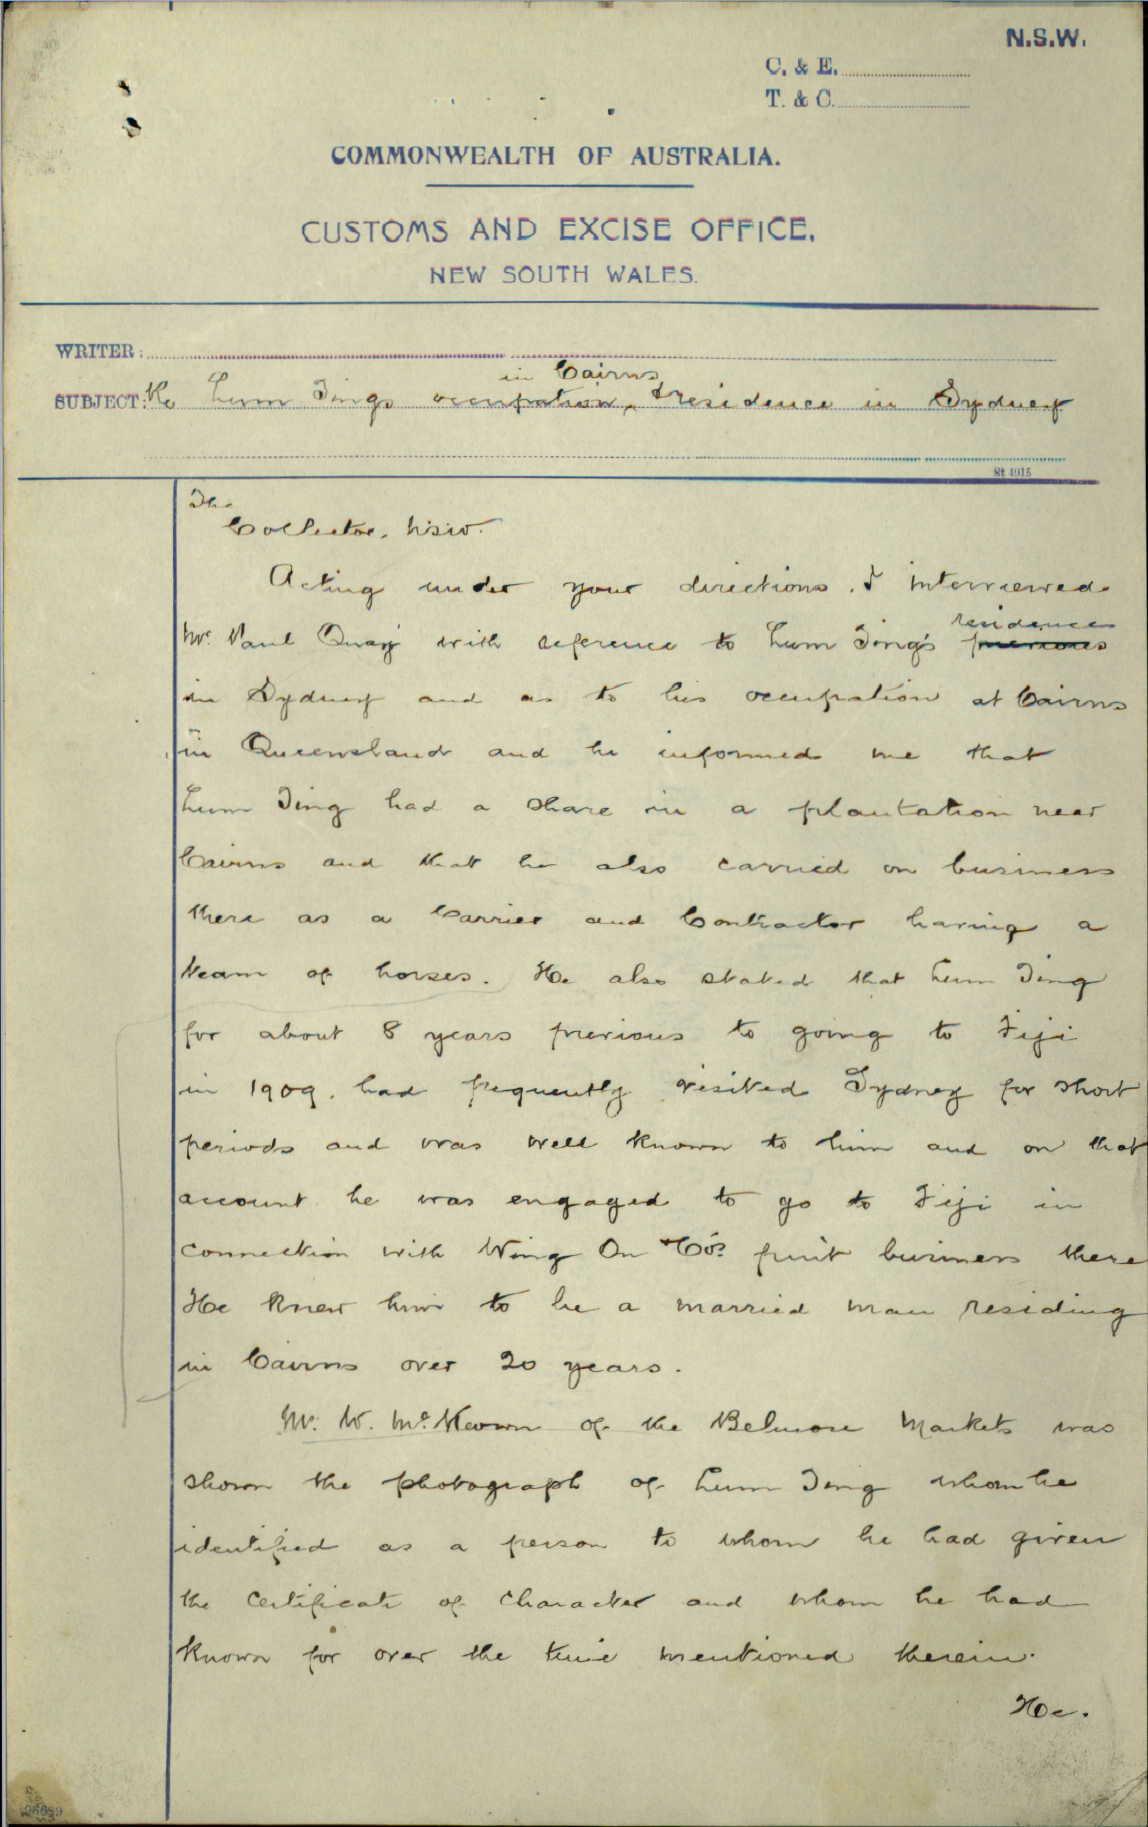 N.S.W.
C. & E.
T. & C.
COMMONWEALTH OF AUSTRALIA.
CUSTOMS AND EXCISE OFFICE,
NEW SOUTH WALES.
WRITER:
in Cairns
SUBJECT: Re Lum Ting's occupation, & residence in Sydney
St 4015
The
Collector, N.S.W.
Acting under your directions, I interviewed
Mr. Paul Quay with reference to Lum Ting's previous
residence
in Sydney and as to his occupation at Cairns
in Queensland and he informed me that
Lum Ting had a share in a plantation near
Cairns and that he also carried on business
there as a Carrier and Contractor having a
team of horses. He also stated that Lum Ting
for about 8 years previous to going to Fiji
in 1909, had frequently visited Sydney for short
periods and was well known to him and on that
account he was engaged to go to Fiji in
connection with Wing On & Co's. fruit business there
He knew him to be a married man residing
in Cairns over 20 years.
Mr. W. McKeown of the Belmore Markets was
shown the photograph of Lum Ting whom he
identified as a person to whom he had given
the certificate of character and whom he had
known for over the time mentioned therein.
He.